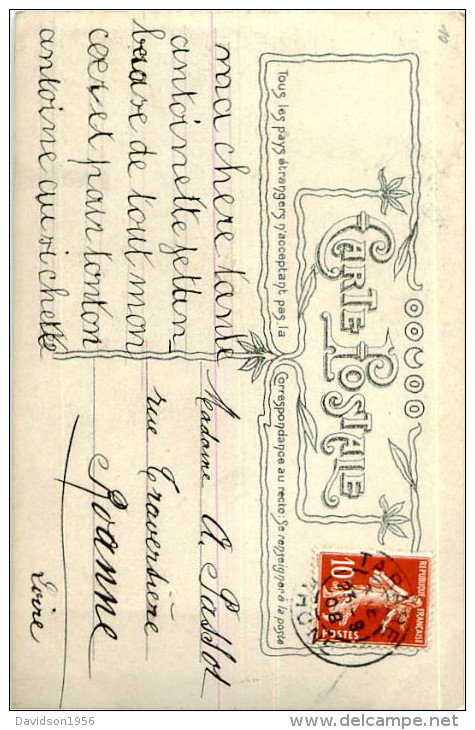 CARTE POSTALE
Tous les pays étrangers n'acceptant pas la
Correspondance au recto: Se renseigner à la poste
ma chere tante
antoinette je t'an-
brase de tout mon
cœr et pair tonton
antoine qui richette
Madame A. Passot
rue Traversière
Roanne
Loire
REPUBLIQUE FRANÇAISE
10
TARARE
RHONE
08
10
Davidson1956
http://www.delcampe.net